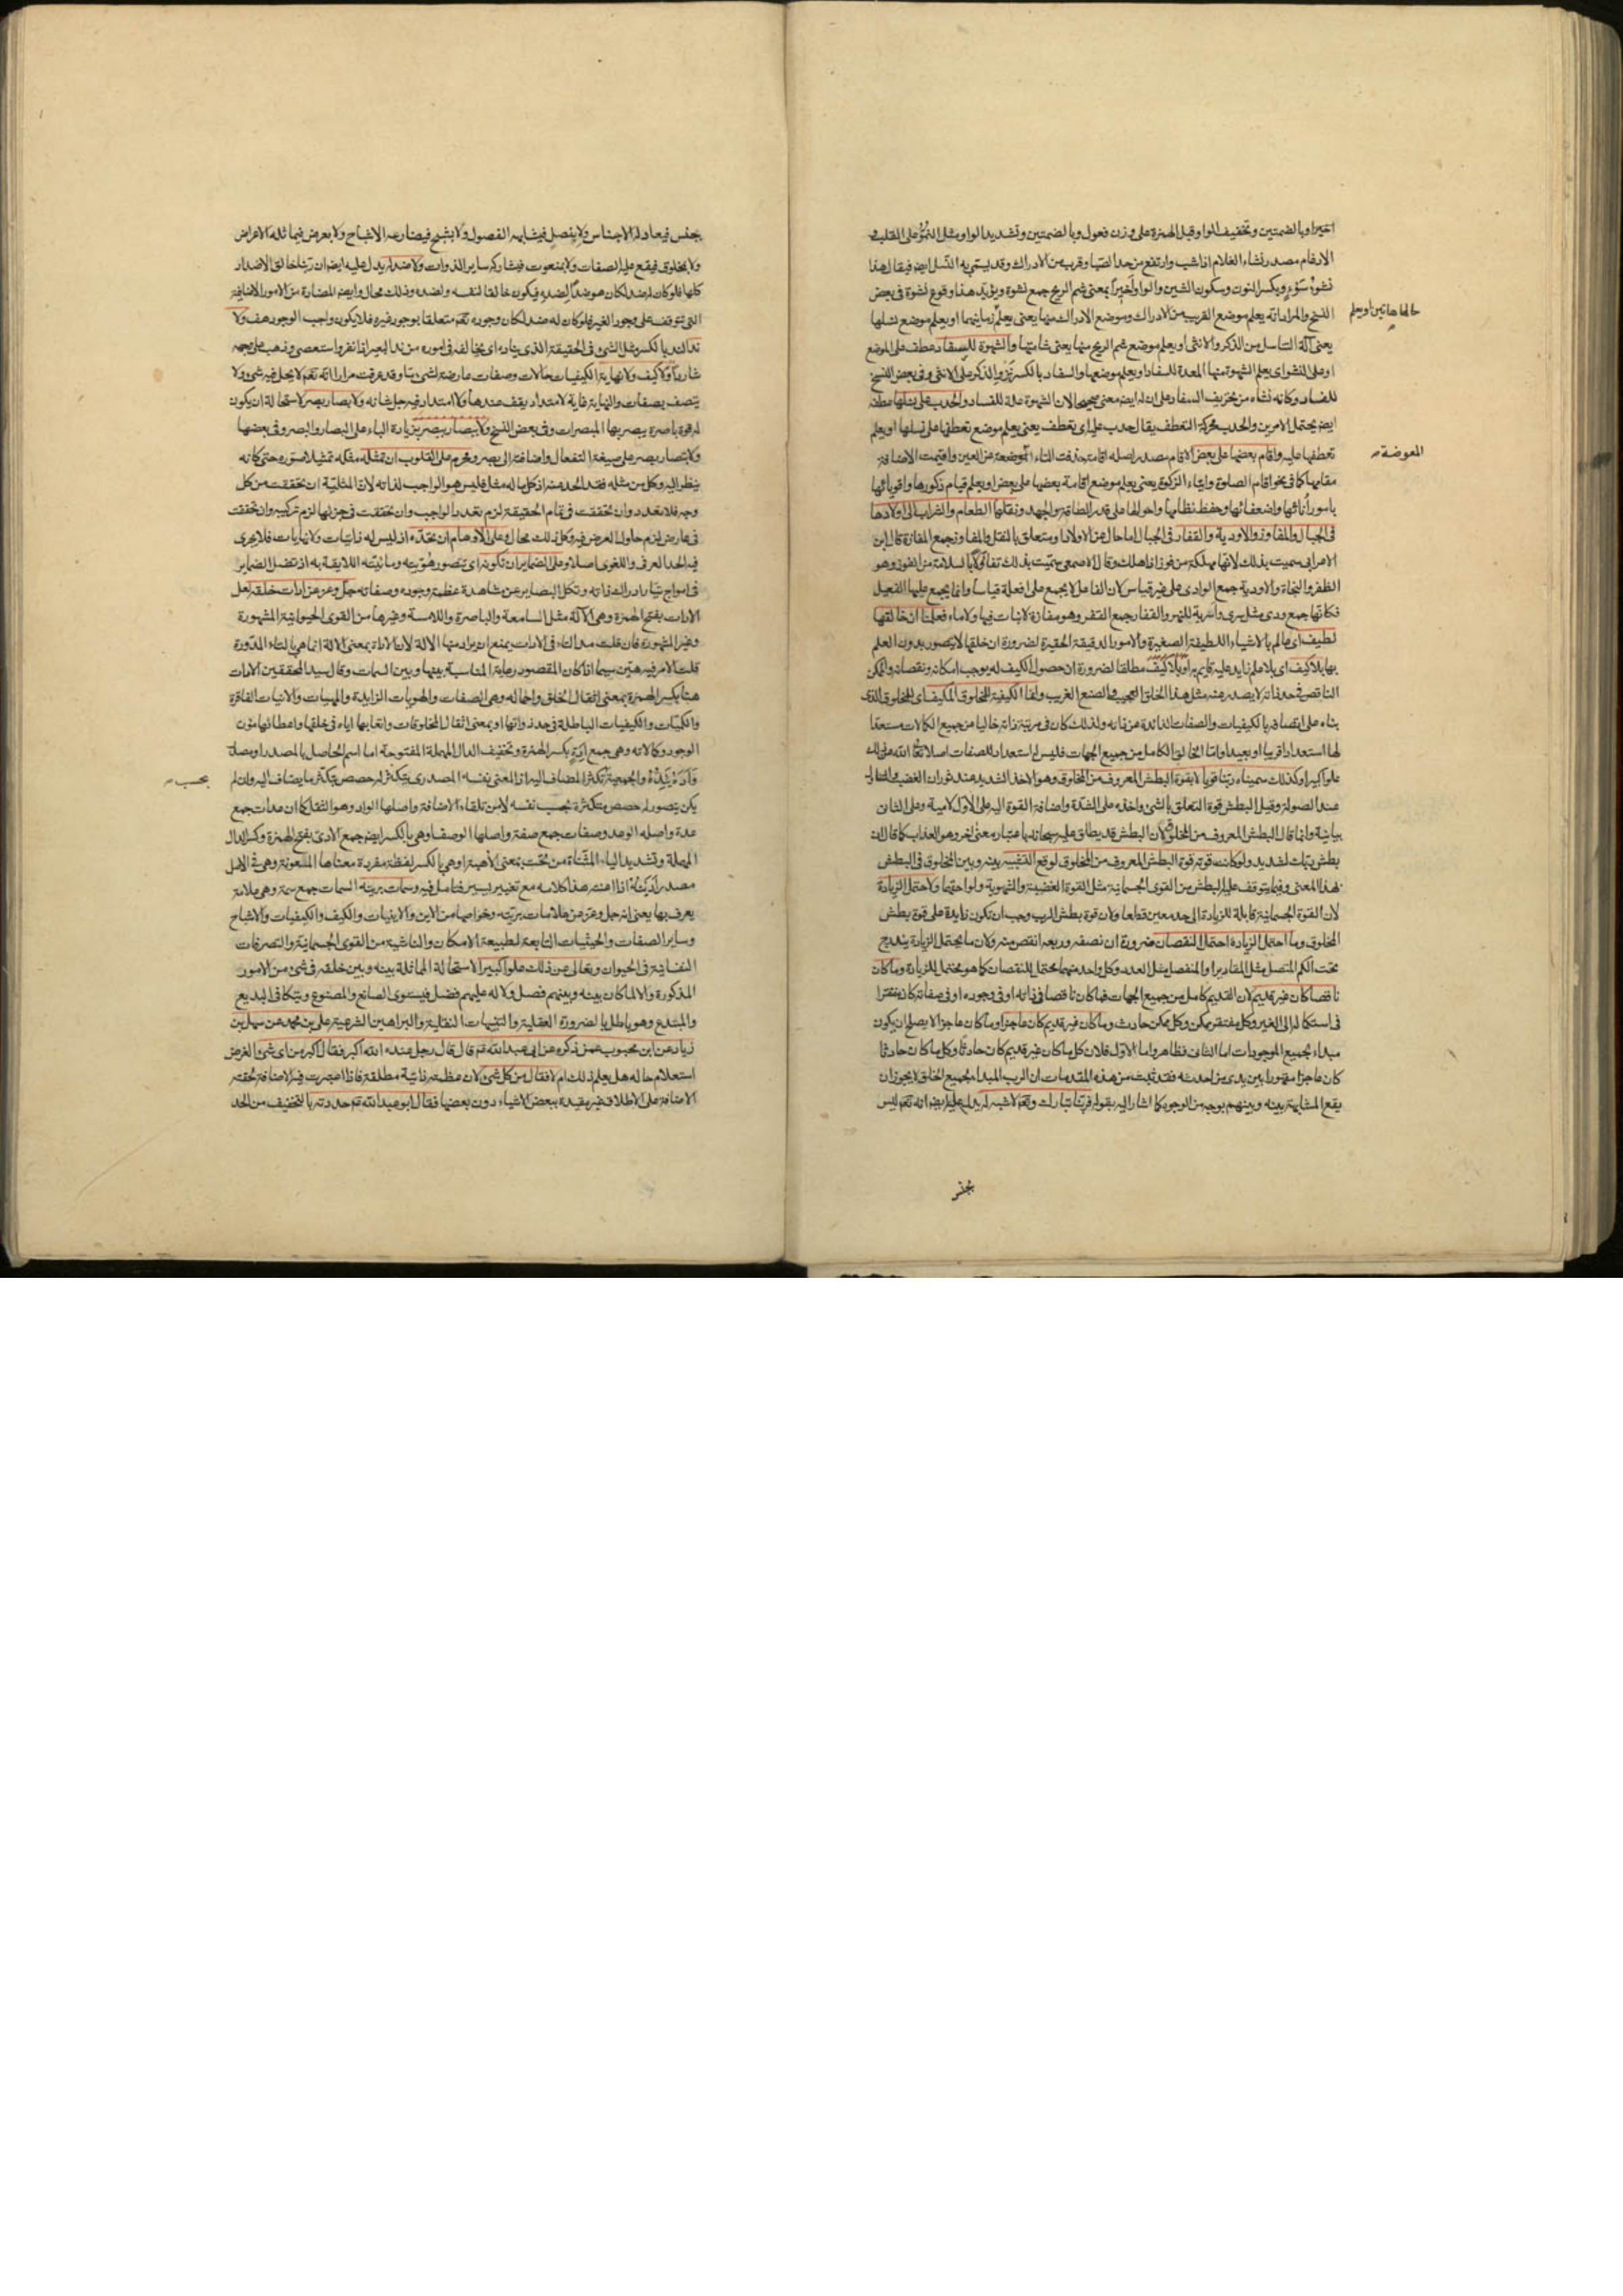 اخيرا وبالضمتين وتخفيف الواو قبل الهمزة على وزن فعول وبالضمتين وتشديد الواو مثل النمو على القلب و
الادغام مصدر نشاء الغلام اذا شب وارتفع من حد الصبا وقرب من الادراك وقد يسمى به النسل ايضا فيقال هذا
نشوء سوء وبكسر النون وسكون الشين والواو اخيرا بمعنى شم الريح جمع نشوة ويؤيد هذا وقوع نشوة فى بعض
النسخ والمراد انه يعلم موضع القريب من الادراك وموضع الادراك منها يعنى يعلم زمانيهما او يعلم موضع نسلها
حالها هاتين او يعلم
يعنى آلة التناسل من الذكر والانثى او يعلم موضع شم الريح منها يعنى شامتها والشهوة للسفاد عطف على الموضع
او على النشو اى يعلم الشهوة منها المعدة للسفاد او يعلم موضعها والسفاد بالكسر نزو الذكر على الانثى وفى بعض النسخ
للفساد وكانه نشاء من تحريف السفاد على ان له ايضا معنى صحيحا لان الشهوة علة للفساد والحدب على نسلها عطفه
ايضا يحتمل الامرين والحدب محركة التعطف يقال حدب عليه اى تعطف يعنى يعلم موضع تعطفها على نسلها او يعلم
تعطفها عليه واقام بعضها على بعض الاقام مصدر اصله اقامة حذفت التاء الموضعة عن العين واقيمت الاضافة
المعوضة
مقامها كما فى نحو اقام الصلوة وايتاء الزكوة يعنى يعلم موضع اقامة بعضها على بعض او يعلم قيام ذكورها واقويائها
بامور اناثها واضعفائها وحفظ نظامها واحوالها على قدر الطاقة والجهد ونقلها الطعام والشراب الى اولادها
فى الجبال والمفاوز والاودية والقفار فى الجبال اما حال عن الاولاد او متعلق بالنقل والمفاوز جمع المفازة قال ابن
الاعرابى سميت بذلك لانها مهلكة من فوز اذا هلك وقال الاصمعى سميت بذلك تفاؤلا بالسلامة من الفوز وهو
الظفر والنجاة والاودية جمع الوادى على غير قياس لان الفاعل لا يجمع على افعلة قياسا وانما يجمع عليها الفعيل
فكانها جمع ودى مثل سرى واسرية للنهر والقفار جمع القفر وهو مفازة لا نبات فيها ولا ماء فعلمنا ان خالقها
لطيف اى عالم بالاشياء اللطيفة الصغيرة والامور الدقيقة الحقيرة لضرورة ان خلقها لا يتصور بدون العلم
بها بلا كيف اى بلا علم زايد عليه قايم به او بلا كيف مطلقا لضرورة ان حصول الكيف له يوجب امكانه ونقصانه والممكن
الناقص فى حد ذاته لا يصدر عنه مثل هذا الخلق العجيب والصنع الغريب وانما الكيفية للمخلوق المكيف اى للمخلوق الذى
بناء على اتصافه بالكيفيات والصفات الزائدة عن ذاته ولذلك كان فى مرتبة ذاته خاليا من جميع الكمالات مستعدا
لها استعدادا قريبا او بعيدا واما الخالق الكامل من جميع الجهات فليس له استعداد للصفات اصلا تعالى الله عن ذلك
علوا كبيرا وكذلك سمينا ربنا قويا لا بقوة البطش المعروف من المخلوق وهو الاخذ الشديد عند ثوران الغضب
عند الصولة وقيل البطش قوة التعلق بالشئ واخذه على الشدة واضافة القوة اليه على الاول لامية وعلى الثانى
بيانية وانما قال البطش المعروف من المخلوق لان البطش قد يطلق عليه سبحانه باعتبار معنى اخر وهو العذاب كما قال ان
بطش ربك لشديد ولو كانت قوته قوة البطش المعروف من المخلوق لوقع التشبيه بينه وبين المخلوق فى البطش
بهذا المعنى وفيما يتوقف عليه البطش من القوى الجسمانية مثل القوة الغضبية والشهوية ولواحقهما ولاحتمل الزيادة
لان القوة الجسمانية قابلة للزيادة الى حد معين قطعا ولان قوة بطش الرب وجب ان تكون زايدة على قوة بطش
المخلوق وما احتمل الزيادة احتمل النقصان ضرورة ان نصفه وربعه انقص منه ولان ما يحتمل الزيادة يندرج
تحت الكم المتصل مثل المقادير او المنفصل مثل العدد وكل واحد منهما يحتمل للنقصان كما هو محتمل للزيادة وما كان
ناقصا كان غير قديم لان القديم كامل من جميع الجهات فما كان ناقصا فى ذاته او فى وجوده او فى صفاته كان مفتقرا
فى استكماله الى الغير وكل مفتقر ممكن وكل ممكن حادث وما كان غير قديم كان عاجزا وما كان عاجزا لا يصلح ان يكون
مبداء لجميع الموجودات اما الثانى فظاهر واما الاول فلان كل ما كان غير قديم كان حادثا وكل ما كان حادثا
كان عاجزا مقهورا بين يدى من احدثه فقد ثبت من هذه المقدمات ان الرب المبداء لجميع الخلق لا يجوز ان
يقع المشابهة بينه وبينهم بوجه من الوجوه كما اشار اليه بقوله فربنا تبارك وتعالى لا شبه له يدل عليه ايضا انه تعالى ليس
بجنس
بجنس فيعادله الاجناس ولا بفصل فيشابهه الفصول ولا بشبح فيضارعه الاشباح ولا بعرض فيماثله الاعراض
ولا بمخلوق فيقع عليه الصفات ولا بمنعوت فيشاركه ساير الذوات ولا ضد له يدل عليه ايضا ان ربنا خالق الاضداد
كلها فلو كان له ضد لكان هو ضدا لضده فيكون خالقا لنفسه ولضده وذلك محال وايضا المضادة من الامور الاضافية
التى تتوقف على وجود الغير فلو كان له ضد لكان وجوده تعالى متعلقا بوجود غيره فلا يكون واجب الوجود هف ولا
ند الند بالكسر مثل الشئ فى الحقيقة الذى يناده اى يخالفه فى اموره من ند البعير اذا نفر واستعصى وذهب على وجهه
شاردا ولا كيف ولا نهاية الكيفيات حالات وصفات عارضة لشئ ما وقد عرفت مرارا انه تعالى لا يحل فيه شئ ولا
يتصف بصفات والنهاية غاية لامتداد يقف عندها ولا امتداد فيه جل شانه ولا بصار بصر لاستحالة ان يكون
له قوة باصرة يبصر بها المبصرات وفى بعض النسخ ولا ببصار ببصر بزيادة الباء على البصار والبصر وفى بعضها
ولا تبصار بصر على صيغة التفعال واضافته الى بصر ومحرم على القلوب ان تمثله مثله تمثيلا صوره حتى كانه
ينظر اليه وكل من مثله فقد الحد منه اذ كل ما له مثل فليس هو الواجب لذاته لان المثلية ان تحققت من كل
وجه فلا تعدد وان تحققت فى تمام الحقيقة لزم تعدد الواجب وان تحققت فى جزئها لزم تركيبه وان تحققت
فى عارض لزم حلول العرض فيه وكل ذلك محال وعلى الاوهام ان تحده اذ ليس له ذاتيات ولا نهايات فلا يجرى
فيه الحد العرفى واللغوى اصلا وعلى الضماير ان تكونه اى تتصور هويته ومائيته اللايقة به اذ تضل الضماير
فى امواج تيار ادراك ذاته وتكل البصاير عن مشاهدة عظمة وجوده وصفاته جل وعز عن ادات خلقه لعل
الادات بفتح الهمزة وهى الآلة مثل السامعة والباصرة واللامسة وغيرها من القوى الحيوانية المشهورة
وغير المشهورة فان قلت مد التاء فى الادات يمنع ان يراد منها الآلة لان الاداة بمعنى الالة انما هى بالتاء المدورة
قلت الامر فيه هين سيما اذا كان المقصود رعاية المناسبة بينها وبين السمات وقال سيد المحققين الادات
هنا بكسر الهمزة بمعنى اثقال الخلق واحماله وهى الصفات والهويات الزايدة والمهيات والانيات الفاقرة
والكميات والكيفيات الباطلة فى حد ذواتها او بمعنى اثقال المخلوقات واتعابها اياه فى خلقها واعطائها مؤن
الوجود وكمالاته وهى جمع ادة بكسر الهمزة وتخفيف الدال المهملة المفتوحة اما اسم الحاصل بالمصدر او مصدر
وأده يئده والجمعية لتكثر المضاف اليه اذ المعنى نفسه المصدرى يتكثر له حصص بتكثر ما يضاف اليه وان لم
بحسب
يكن يتصور له حصص متكثرة بحسب نفسه لا من تلقاء الاضافة واصلها الواد وهو الثقل كما ان عدات جمع
عدة واصله الوعد وصفات جمع صفة واصلها الوصف او هى بالكسر ايضا جمع الادى بفتح الهمزة وكسر الدال
المهملة وتشديد الياء المثناة من تحت بمعنى الاهبة او هى بالكسر لفظة مفردة معناها المعونة وهى فى الاصل
مصدر اديته اذا اعنته هذا كلامه مع تغيير يسير فتامل فيه وسمات بريته السمات جمع سمة وهى علامة
يعرف بها يعنى انه جل وعز عن علامات بريته وخواصها من الاين والاينيات والكيف والكيفيات والاشباح
وساير الصفات والحيثيات التابعة لطبيعة الامكان والناشية من القوى الجسمانية والتصرفات
النفسانية فى الحيوان وتعالى عن ذلك علوا كبيرا لاستحالة المماثلة بينه وبين خلقه فى شئ من الامور
المذكورة والا لما كان بينه وبينهم فصل ولا له عليهم فضل فيستوى الصانع والمصنوع ويتكافى البديع
والمبتدع وهو باطل بالضرورة العقلية والتنبيهات النقلية والبراهين الشرعية على بن محمد عن سهل بن
زياد عن ابن محبوب عمن ذكره عن ابى عبد الله تم قال قال رجل عنده الله اكبر فقال اكبر من اى شئ الغرض
استعلام حاله هل يعلم ذلك ام لا فقال من كل شئ لان عظمته ذاتية مطلقة فاذا اعتبرت فيه الاضافة تحققت
الاضافة على الاطلاق غير مقيدة ببعض الاشياء دون بعضها فقال ابو عبد الله تم حددته بالتخفيف من الحد